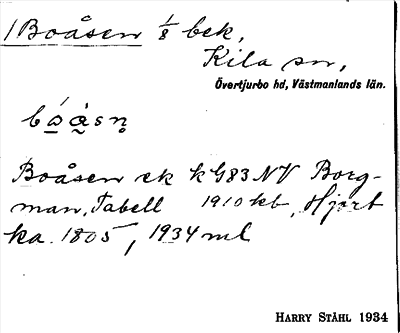 /Boåsen 1/8 bek,
Kila sn,
Övertjurbo hd, Västmanlands län.
Boåsen ek k G83NV Borg-
man, Tabell 1910 kb, Hjort
ka. 1805, 1934 ml
HARRY STÅHL 1934